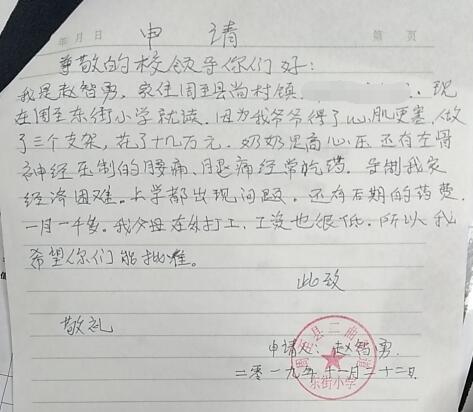 年 月 日
第 页
申 请
尊敬的校领导你们好:
我是赵智勇,家住周至县尚村镇 现
在周至东街小学就读。因为我爷爷得了心肌更塞,做
了三个支架,花了十几万元。奶奶患高心压还有坐骨
神经压制的腰痛、腿痛经常吃药。导制我家
经济困难。上学都出现问题。还有后期的药费
一月一千多。我父母在外打工,工资也很低。所以我
希望你们能批准。
此致
敬礼
申请人:赵智勇
二零一九年十一月二十二日
县二曲
东街小学